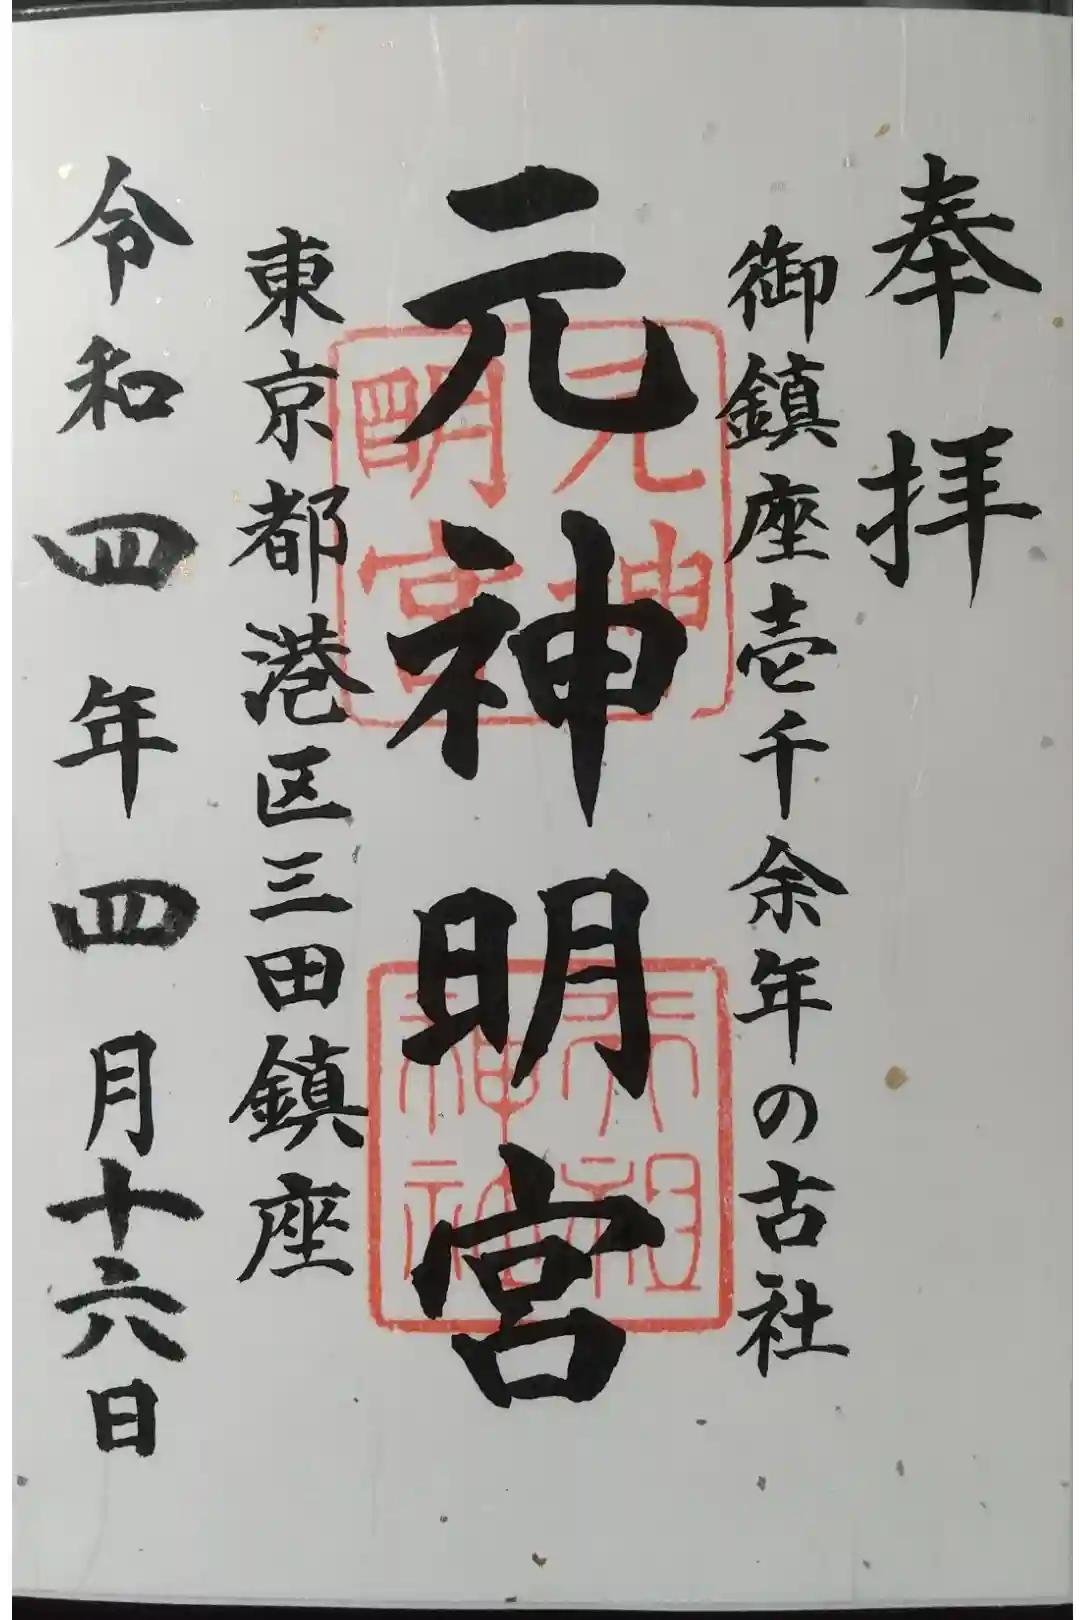 奉拝
御鎮座壱千余年の古社
元神明宮
元神明宮
天祖神社
東京都港区三田鎮座
令和四年四月十六日